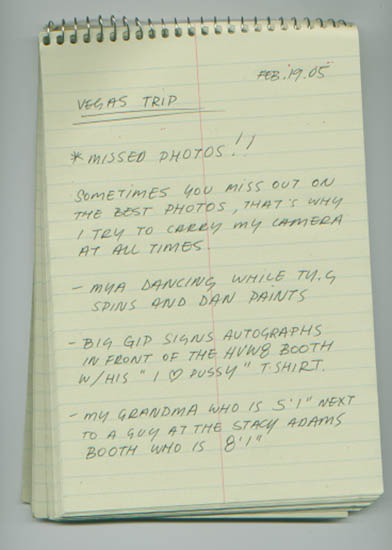 FEB.19.05
VEGAS TRIP
*MISSED PHOTOS!!
SOMETIMES YOU MISS OUT ON
THE BEST PHOTOS, THAT'S WHY
I TRY TO CARRY MY CAMERA
AT ALL TIMES
- MYA DANCING WHILE TY.G
SPINS AND DAN PAINTS
- BIG GIP SIGNS AUTOGRAPHS
IN FRONT OF THE HVW8 BOOTH
W/HIS "I ♡ PUSSY" T.SHIRT.
- MY GRANDMA WHO IS 5'1" NEXT
TO A GUY AT THE STACY ADAMS
BOOTH WHO IS 8'1"